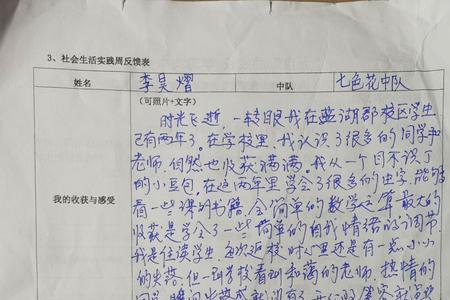 3、社会生活实践周反馈表
姓名 李昊熠 中队 七色花中队
(可照片+文字)
我的收获与感受
时光飞逝,一转眼我在蓝湖郡校区学生
已有两年了。在学校里,我认识了很多的同学和
老师,自然也收获满满。我从一个目不识丁
的小豆包,在这两年里学会了很多的生字,能够
看一些课外书籍,会简单的数学运算最大的
收获是学会了一些简单的自我情绪的调节,
我是住读学生,每次返校时心里还是有一点小小
的失落,但一到学校看到和蔼的老师,热情的
同学,瞬间失落感就没有了